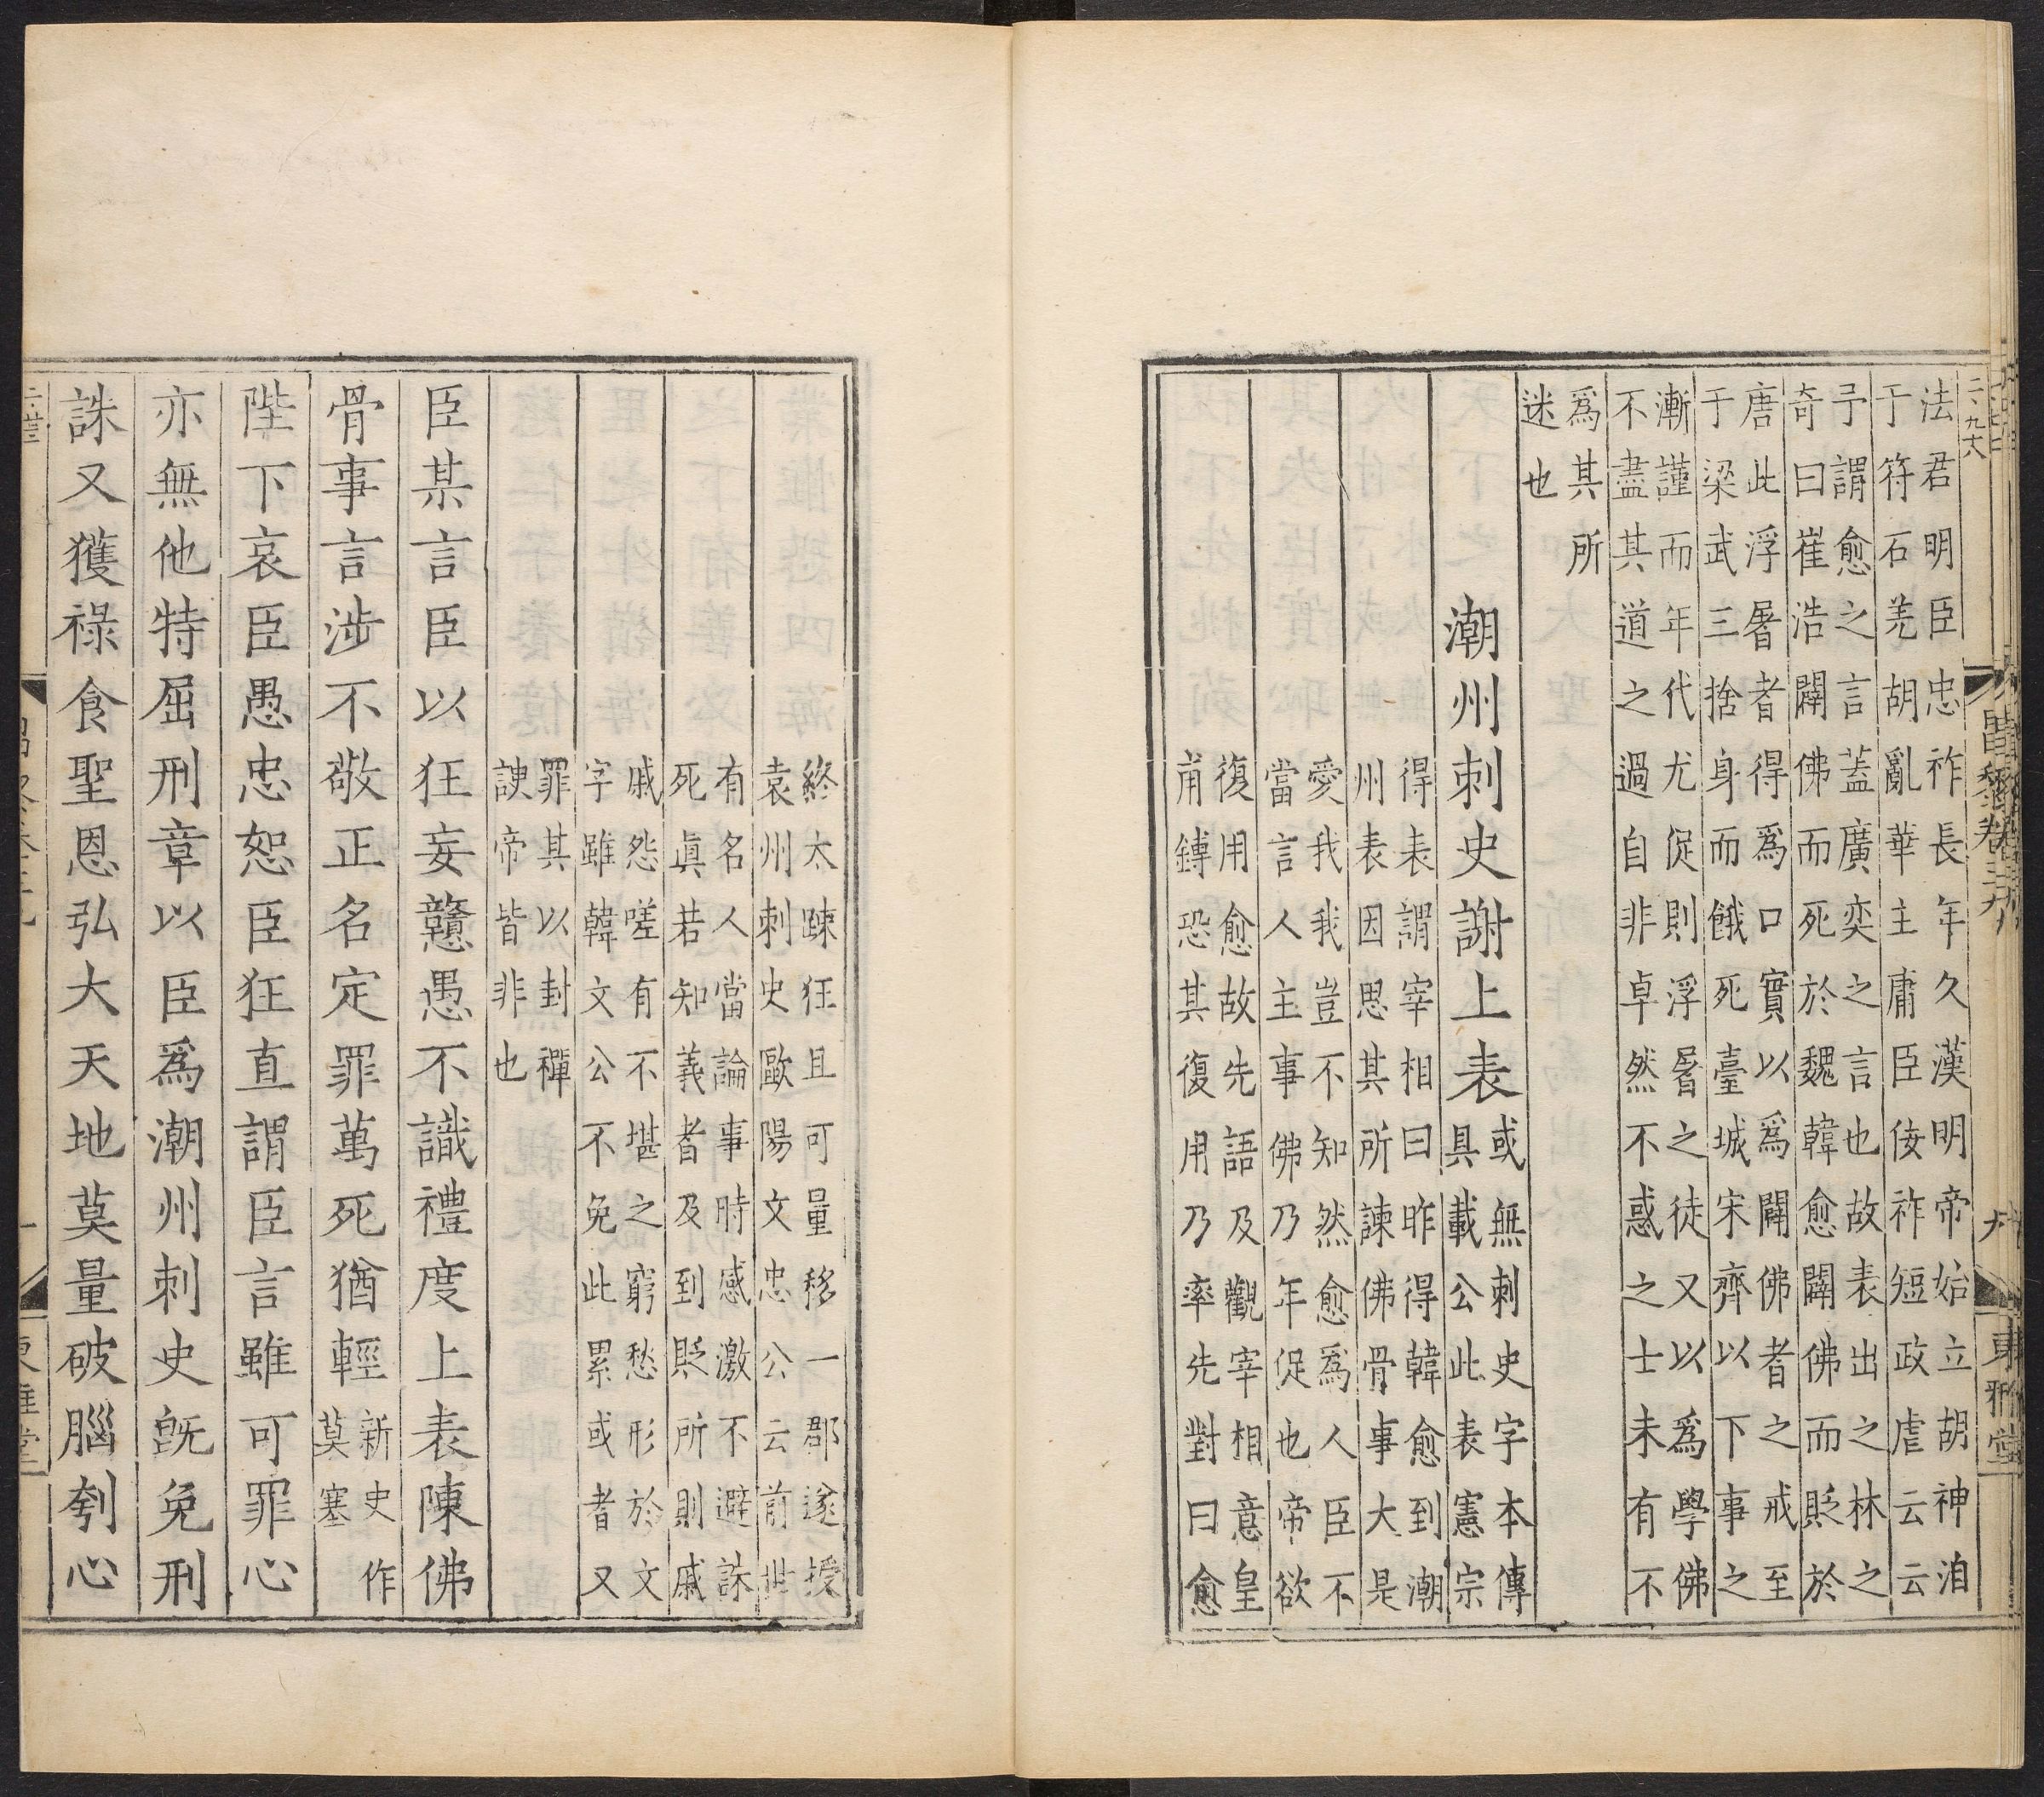 法君明臣忠祚長年久漢明帝始立胡神洎
于符石羌胡亂華主庸臣佞祚短政虐云云
予謂愈之言蓋廣奕之言也故表出之林之
奇曰崔浩闢佛而死於魏韓愈闢佛而貶於
唐此浮屠者得爲口實以爲闢佛者之戒至
于梁武三捨身而餓死臺城宋齊以下事之
漸謹而年代尤促則浮屠之徒又以爲學佛
不盡其道之過自非卓然不惑之士未有不
爲其所
迷也
潮州刺史謝上表
或無刺史字本傳
具載公此表憲宗
得表謂宰相曰昨得韓愈到潮
州表因思其所諫佛骨事大是
愛我我豈不知然愈爲人臣不
當言人主事佛乃年促也帝欲
復用愈故先語及觀宰相意皇
甫鏄恐其復用乃率先對曰愈
終太踈狂且可量移一郡遂授
袁州刺史歐陽文忠公云前世
有名人當論事時感激不避誅
死眞若知義者及到貶所則戚
戚怨嗟有不堪之窮愁形於文
字雖韓文公不免此累或者又
罪其以封禪
諛帝皆非也
臣某言臣以狂妄戇愚不識禮度上表陳佛
骨事言涉不敬正名定罪萬死猶輕
新史作
莫塞
陛下哀臣愚忠恕臣狂直謂臣言雖可罪心
亦無他特屈刑章以臣爲潮州刺史旣免刑
誅又獲祿食聖恩弘大天地莫量破腦刳心
昌黎卷三九
九
東雅堂